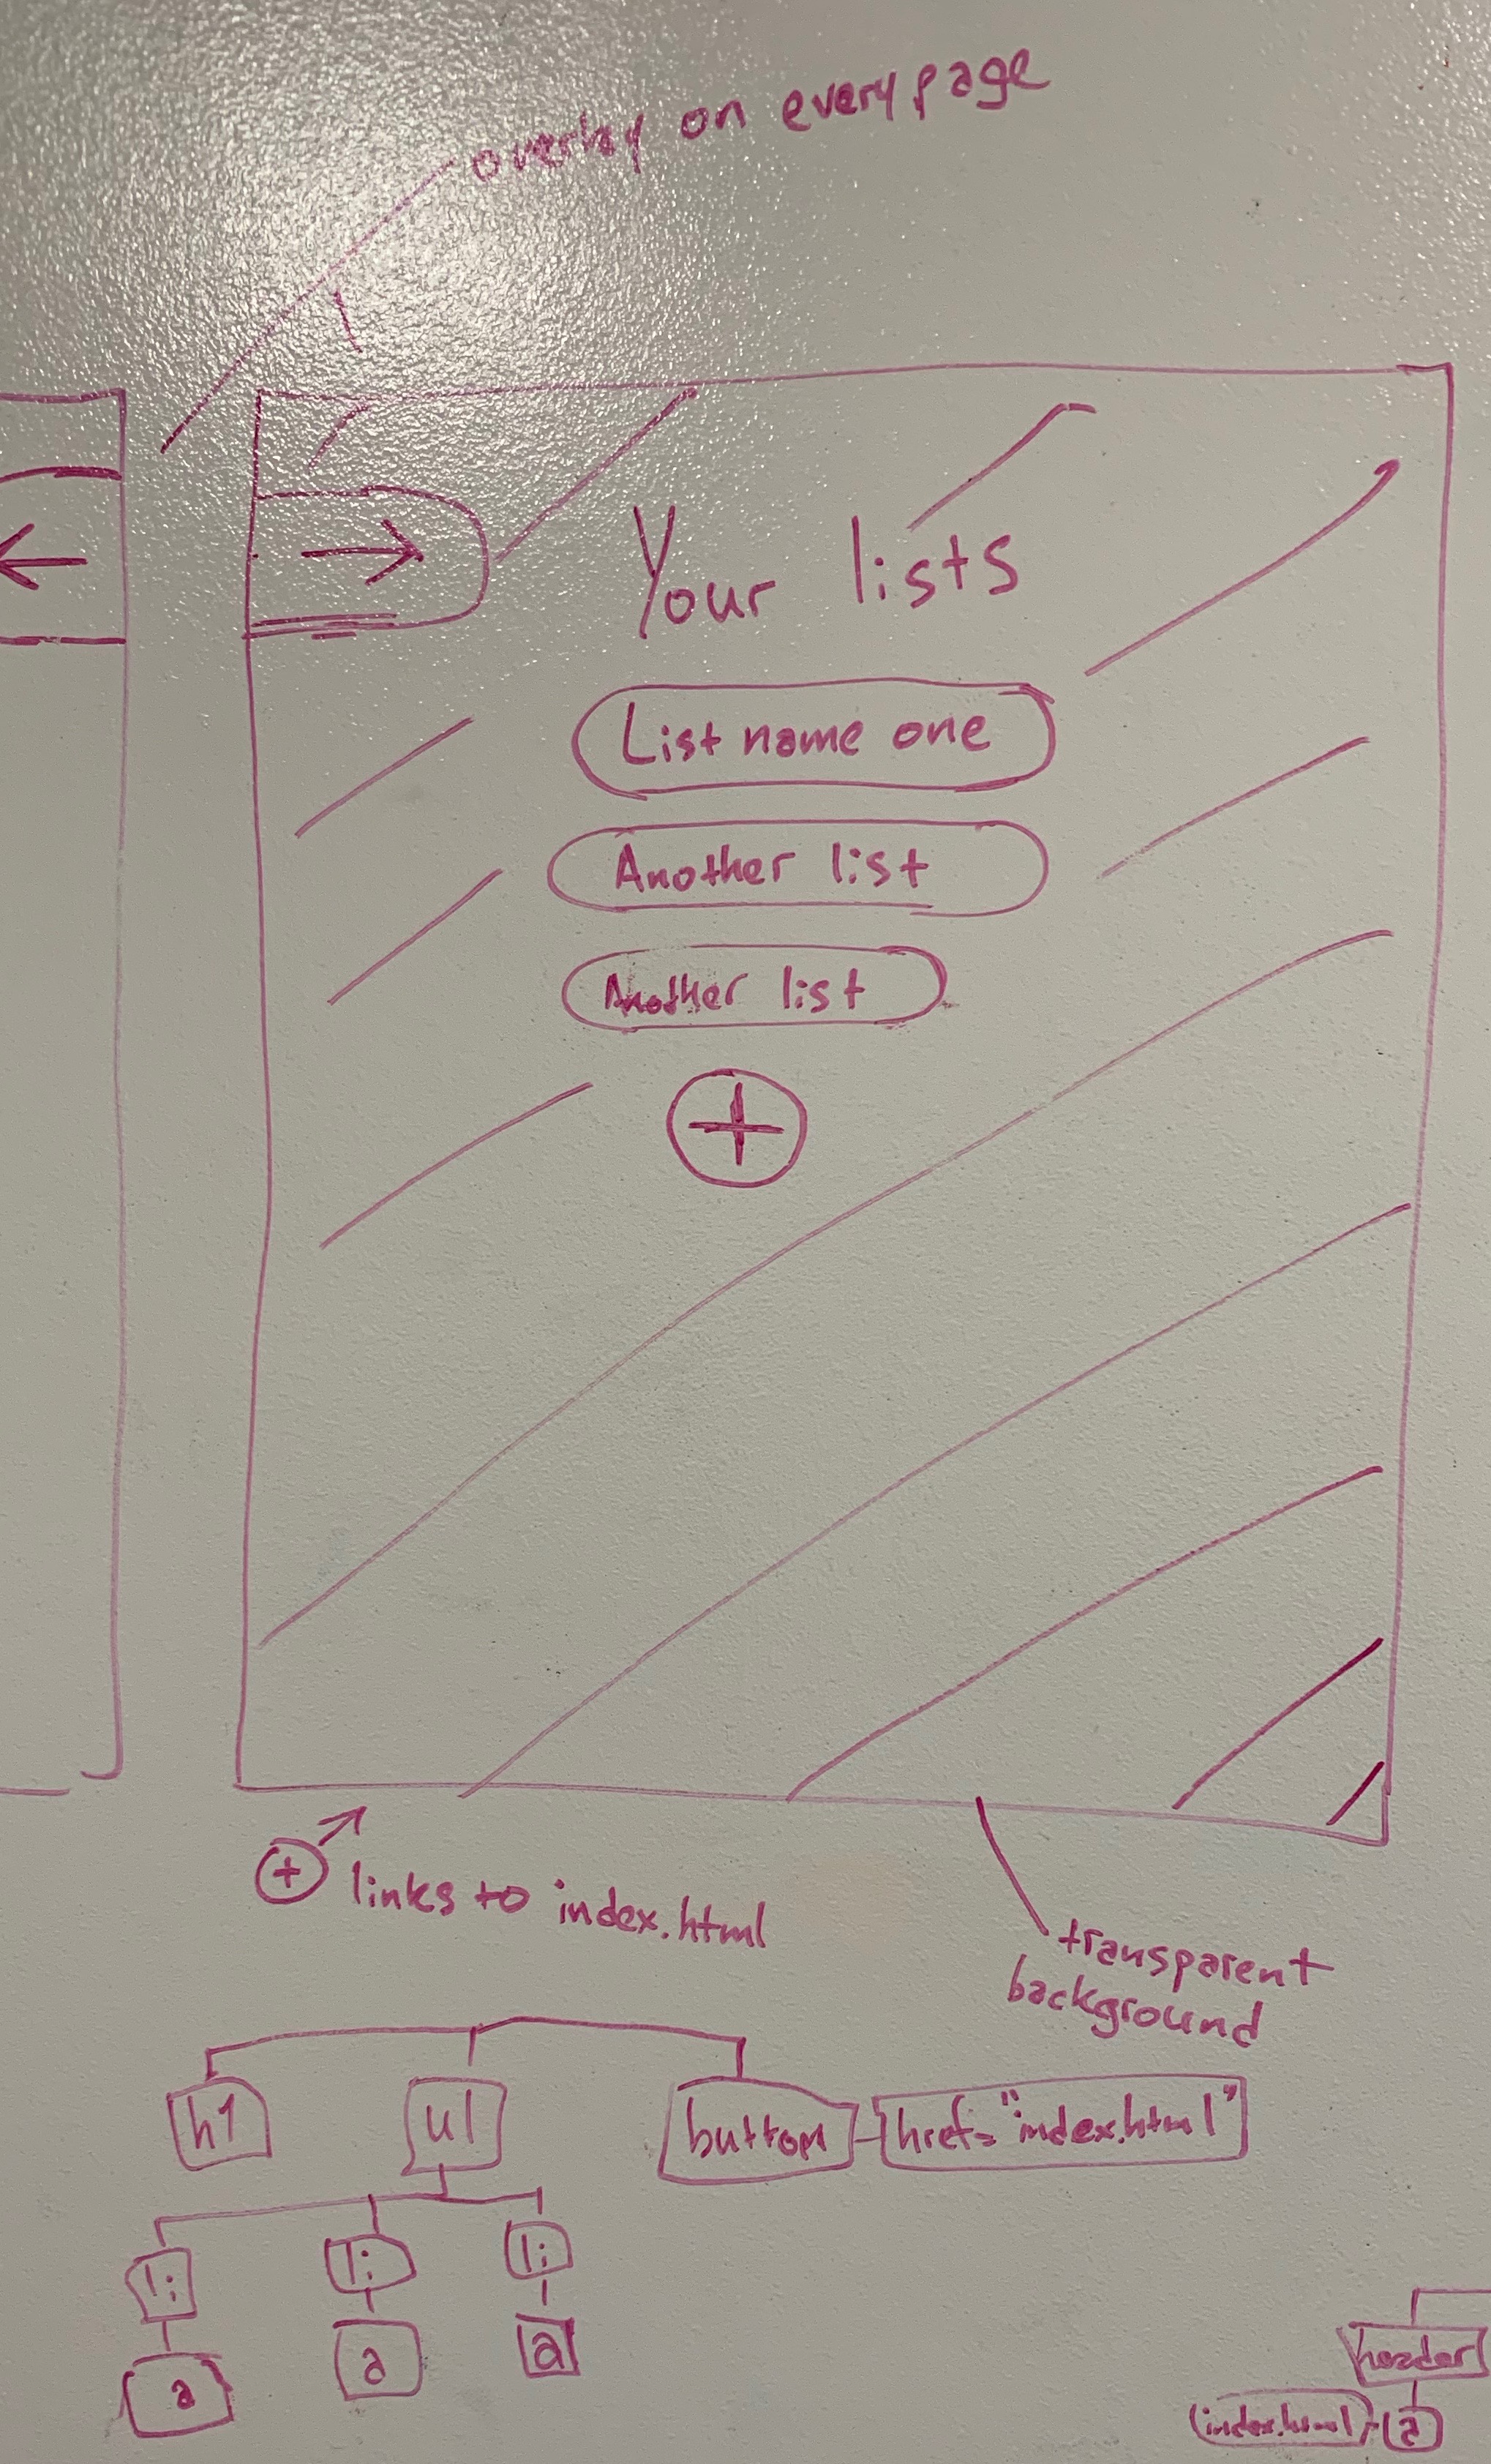 overlay on every page
Your lists
List name one
Another list
Another list
+
+ links to index.html
transparent
background
h1
ul
button
href="index.html"
li
li
li
a
a
a
header
index.html
a